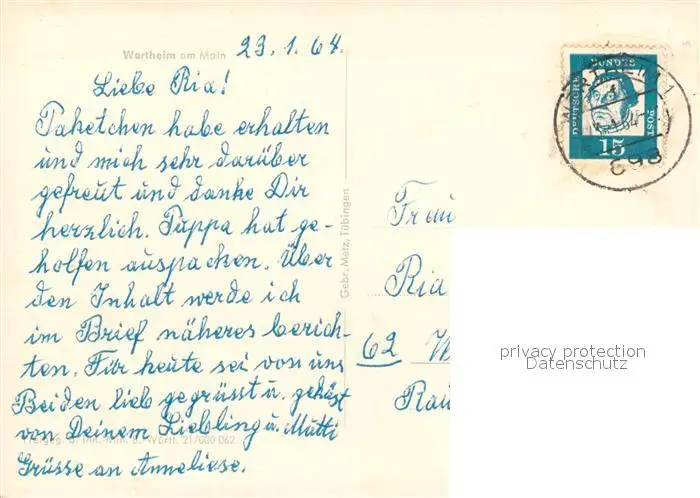 Wertheim am Main
23.1.64.
Liebe Ria!
Paketchen habe erhalten
und mich sehr darüber
gefreut und danke Dir
herzlich. Puppa hat ge-
holfen auspacken. Über
den Inhalt werde ich
im Brief näheres berich-
ten. Für heute sei von uns
Beiden lieb gegrüsst u. geküsst
von Deinem Liebling u. Mutti
Grüsse an Anneliese.
21/000 062
Gebr. Metz, Tübingen
DEUTSCHE
BUNDES
POST
15
898
Frau
Ria
62 W
Rau
privacy protection
Datenschutz